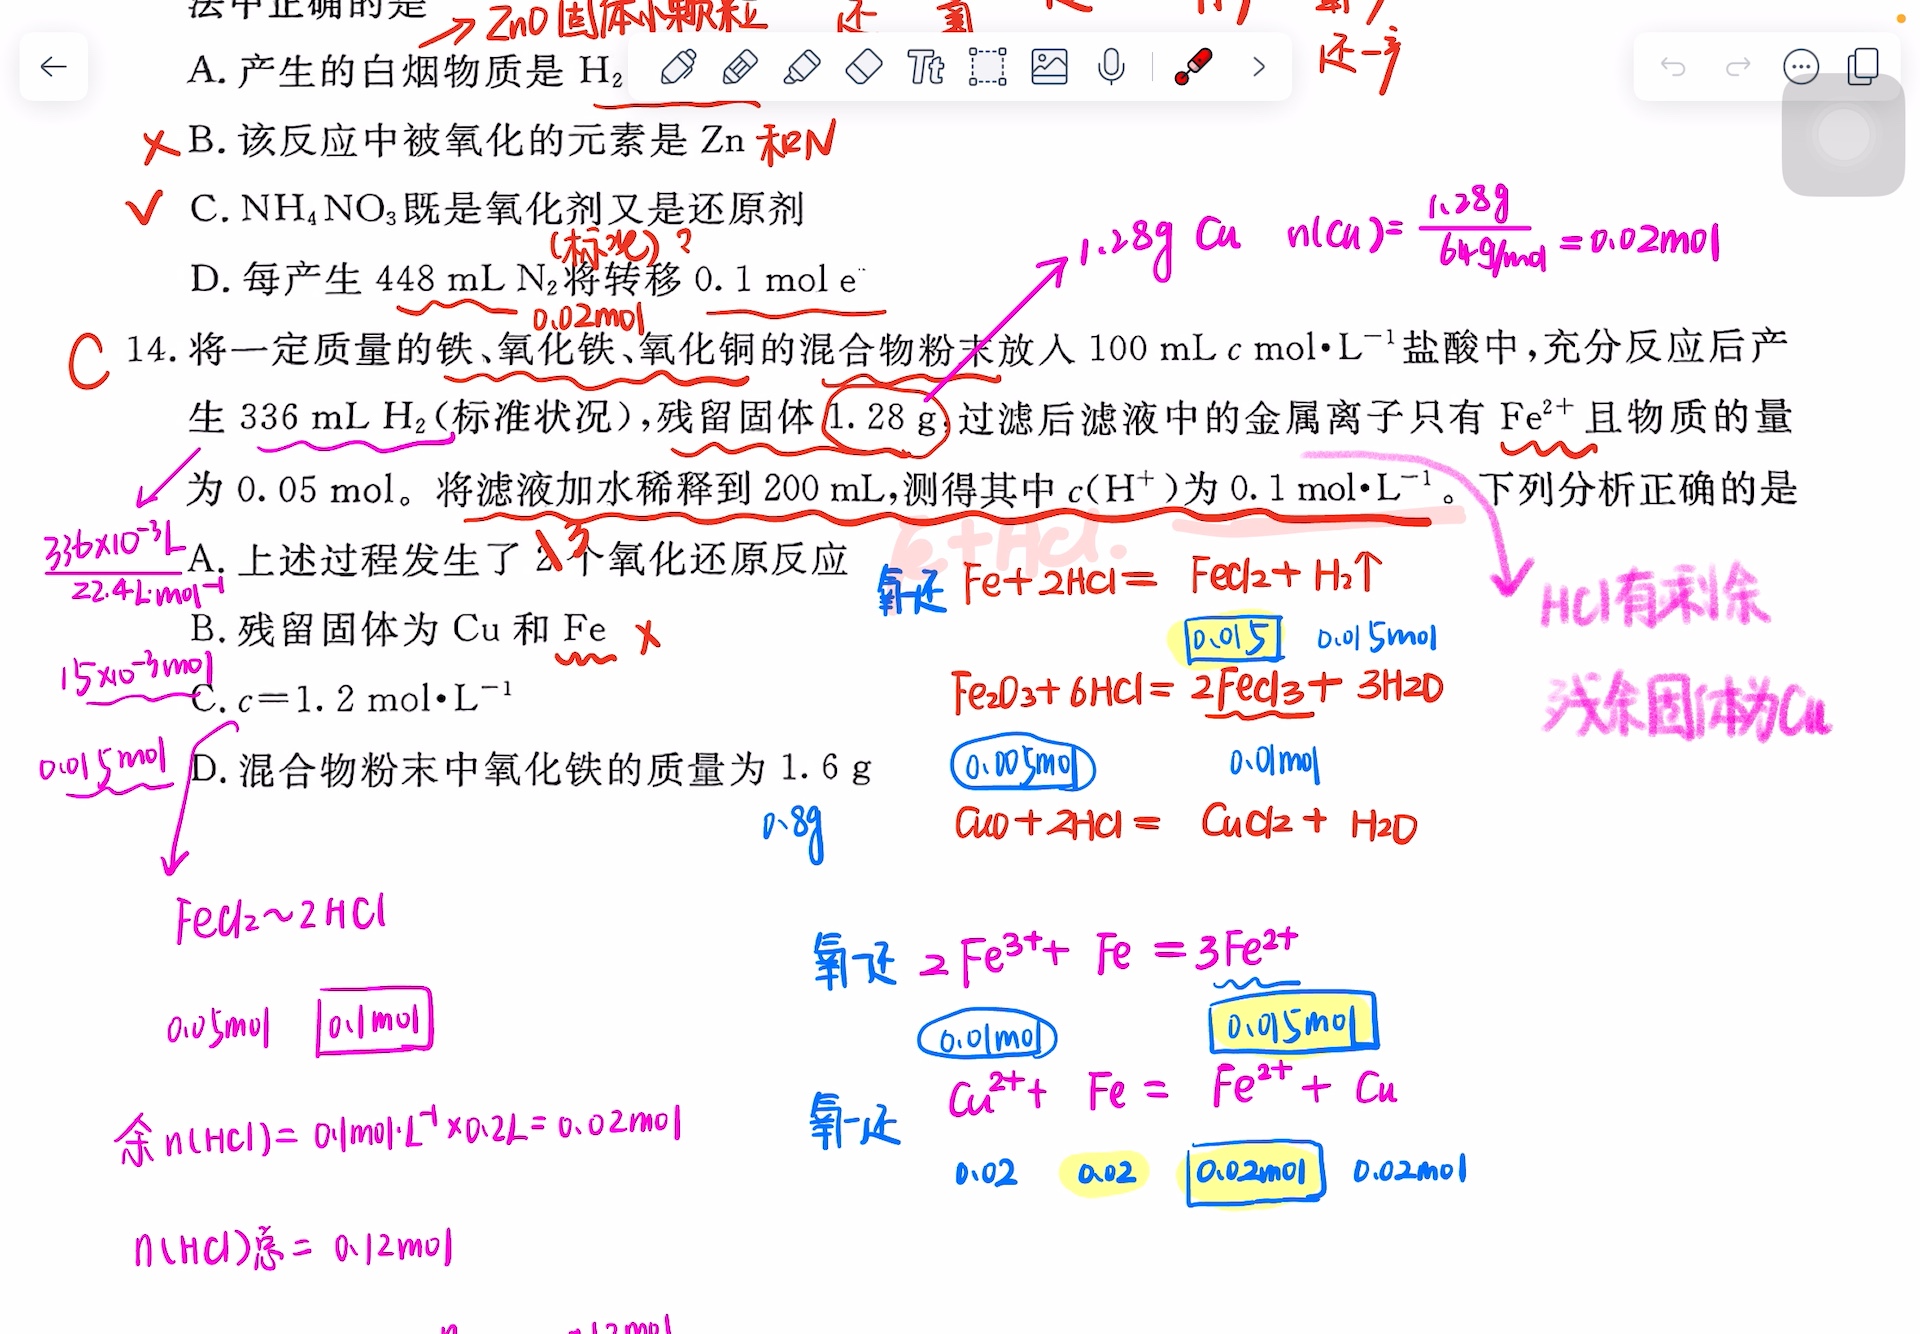 法中正确的是
→ZnO固体小颗粒 还 氧
还-产
A. 产生的白烟物质是 H₂
× B. 该反应中被氧化的元素是 Zn 和N
√ C. NH₄NO₃既是氧化剂又是还原剂
(标况)?
D. 每产生 448 mL N₂将转移 0.1 mol e⁻
0.02mol
1.28g Cu n(Cu)= 1.28g / 64g/mol =0.02mol
C 14. 将一定质量的铁、氧化铁、氧化铜的混合物粉末放入 100 mL c mol•L⁻¹盐酸中,充分反应后产
生 336 mL H₂(标准状况),残留固体 1.28 g,过滤后滤液中的金属离子只有 Fe²⁺且物质的量
为 0.05 mol。将滤液加水稀释到 200 mL,测得其中 c(H⁺)为 0.1 mol•L⁻¹。下列分析正确的是
336×10⁻³L
22.4L·mol⁻¹
15×10⁻³mol
0.015mol
A. 上述过程发生了 2个氧化还原反应
3
B. 残留固体为 Cu 和 Fe ×
C. c=1.2 mol•L⁻¹
D. 混合物粉末中氧化铁的质量为 1.6 g
0.8g
e+HCl.
氧还 Fe+2HCl= FeCl₂+ H₂↑
0.015 0.015mol
Fe₂O₃+6HCl= 2FeCl₃+ 3H₂O
0.005mol 0.01mol
CuO+2HCl= CuCl₂+ H₂O
HCl有剩余
残余固体为Cu
FeCl₂~2HCl
0.05mol 0.1mol
余n(HCl)= 0.1mol·L⁻¹×0.2L=0.02mol
n(HCl)总= 0.12mol
氧-还 2Fe³⁺+ Fe =3Fe²⁺
0.01mol 0.015mol
氧-还 Cu²⁺+ Fe = Fe²⁺+ Cu
0.02 0.02 0.02mol 0.02mol
Tt